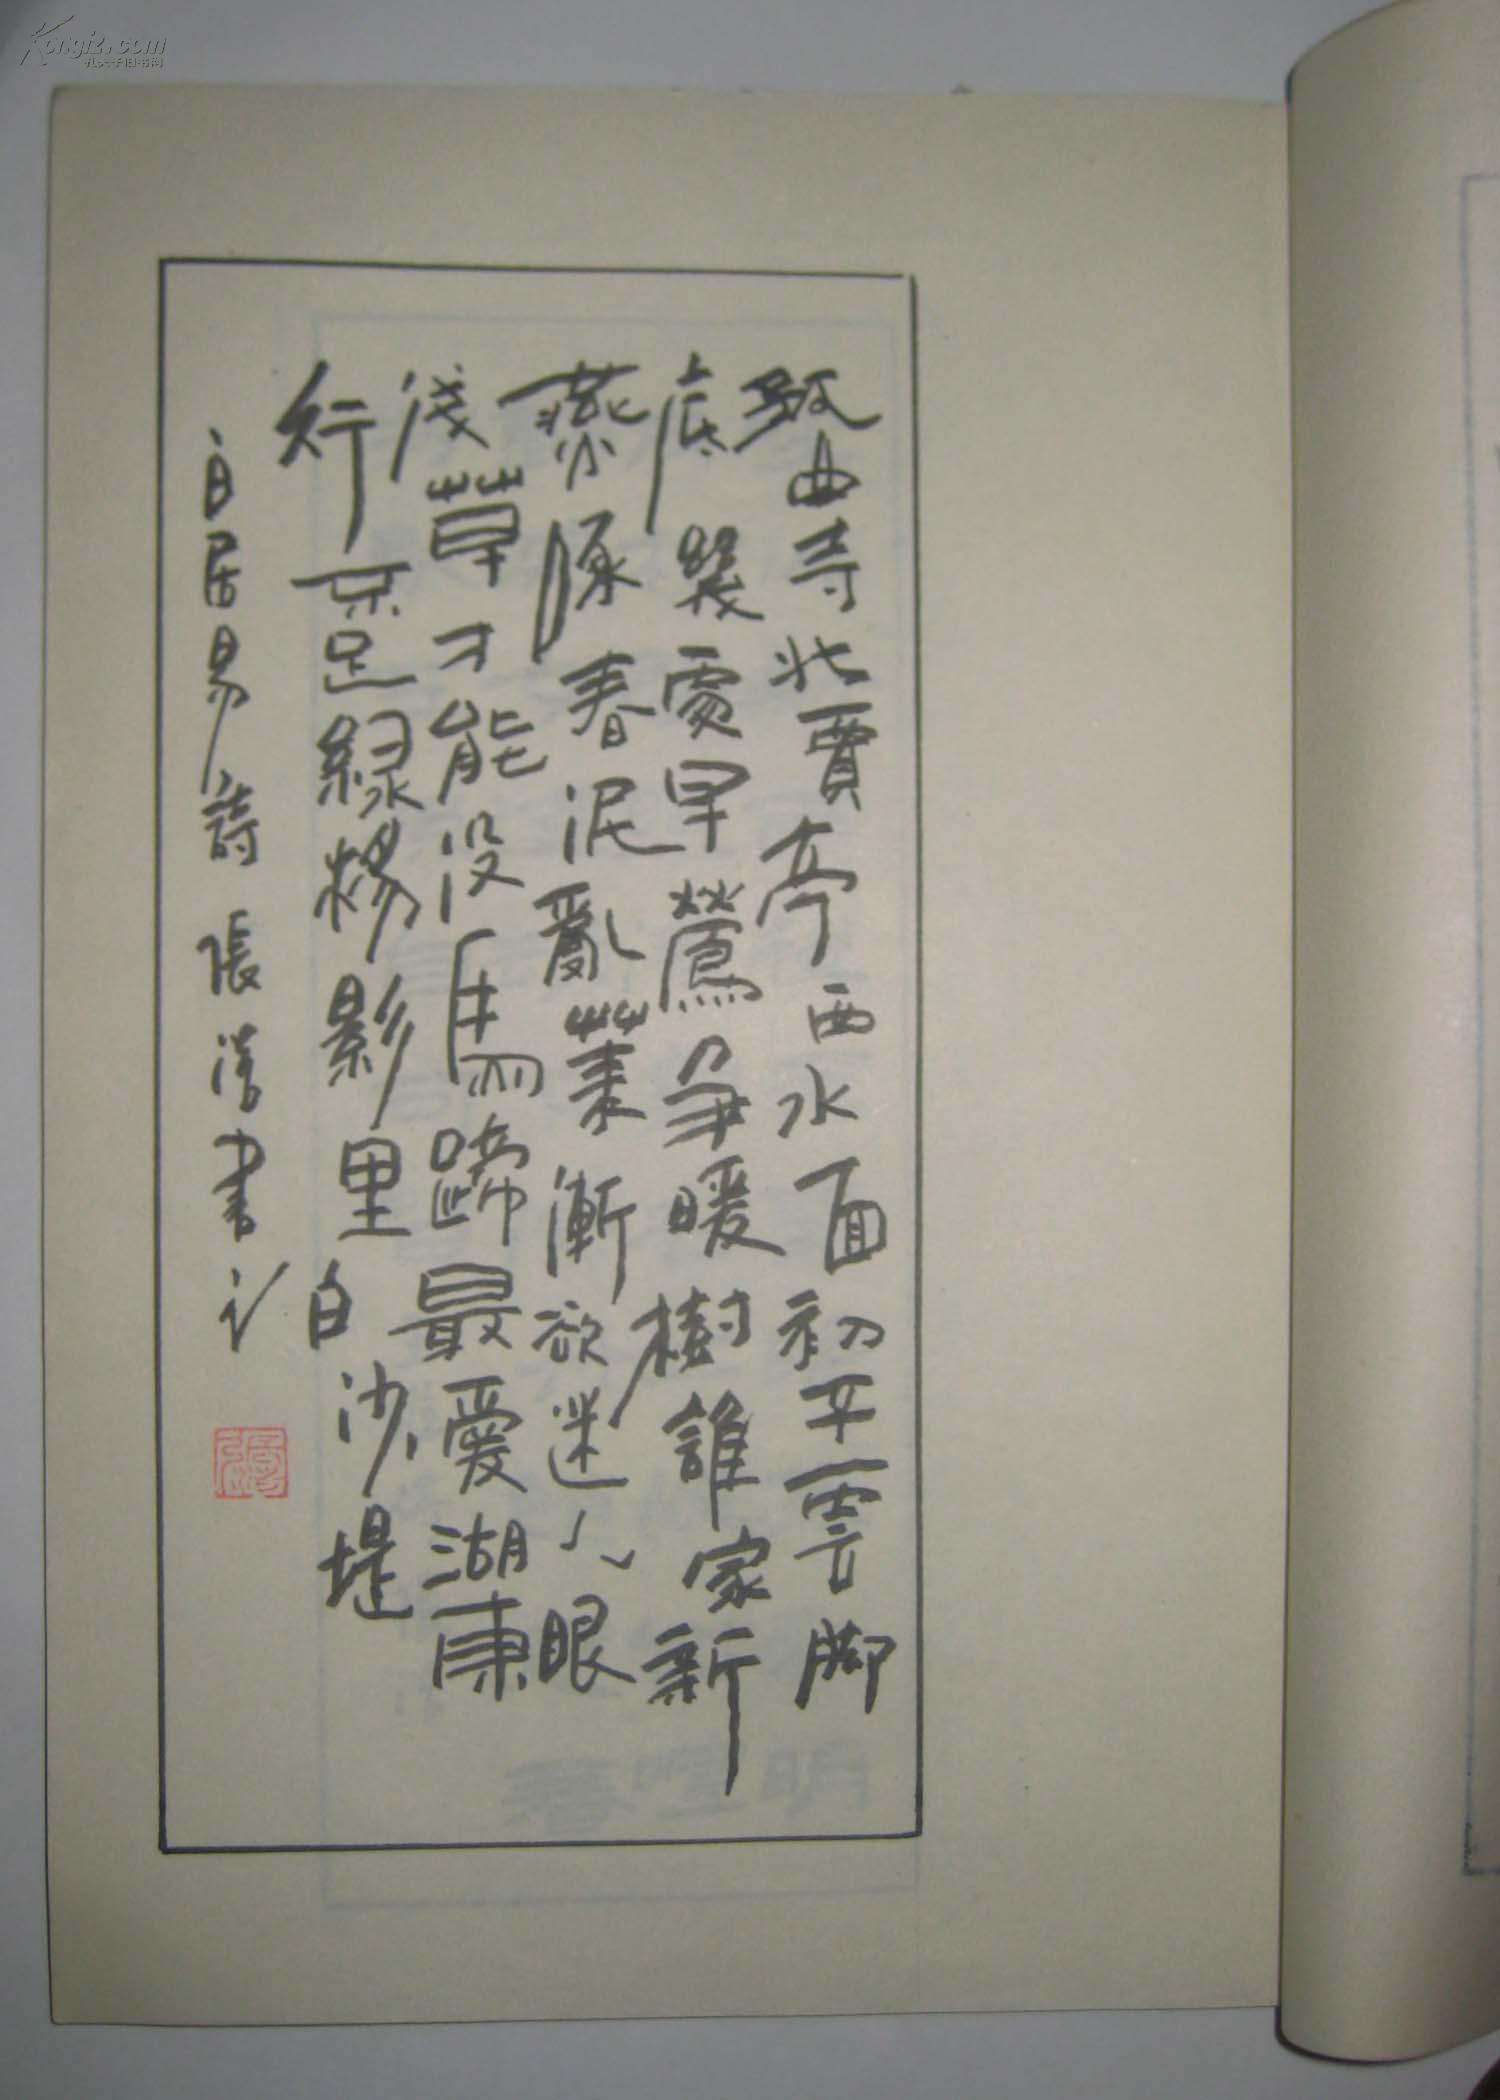 孤山寺北賈亭西水面初平雲脚
底幾處早鶯爭暖樹誰家新
燕啄春泥亂華漸欲迷人眼
淺草才能没馬蹄最愛湖東
行不足綠楊影里白沙堤
白居易詩 張書
Kongfz.com
孔夫子旧书网